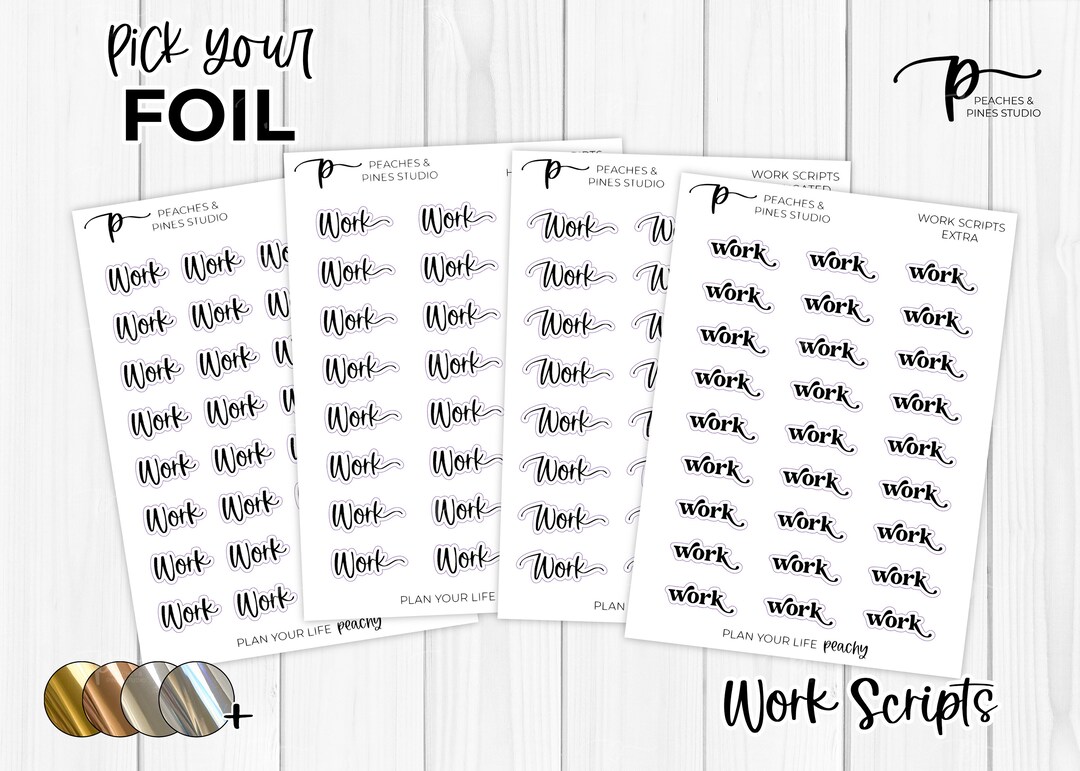 Pick your
FOIL
p PEACHES &
PINES STUDIO
p PEACHES &
PINES STUDIO
Work Work
Work Work
Work Work
Work Work
Work Work
Work Work
Work Work
Work Work
PLAN YOUR LIFE peachy
p PEACHES &
PINES STUDIO
Work Work
Work Work
Work Work
Work Work
Work Work
Work Work
Work Work
Work Work
PLAN YOUR LIFE
p PEACHES &
PINES STUDIO
WORK SCRIPTS
Work
Work
Work
Work
Work
Work
Work
Work
PLAN
p PEACHES &
PINES STUDIO
WORK SCRIPTS
EXTRA
work work work
work work work
work work work
work work work
work work work
work work work
work work work
work work work
work work work
PLAN YOUR LIFE peachy
+
Work Scripts